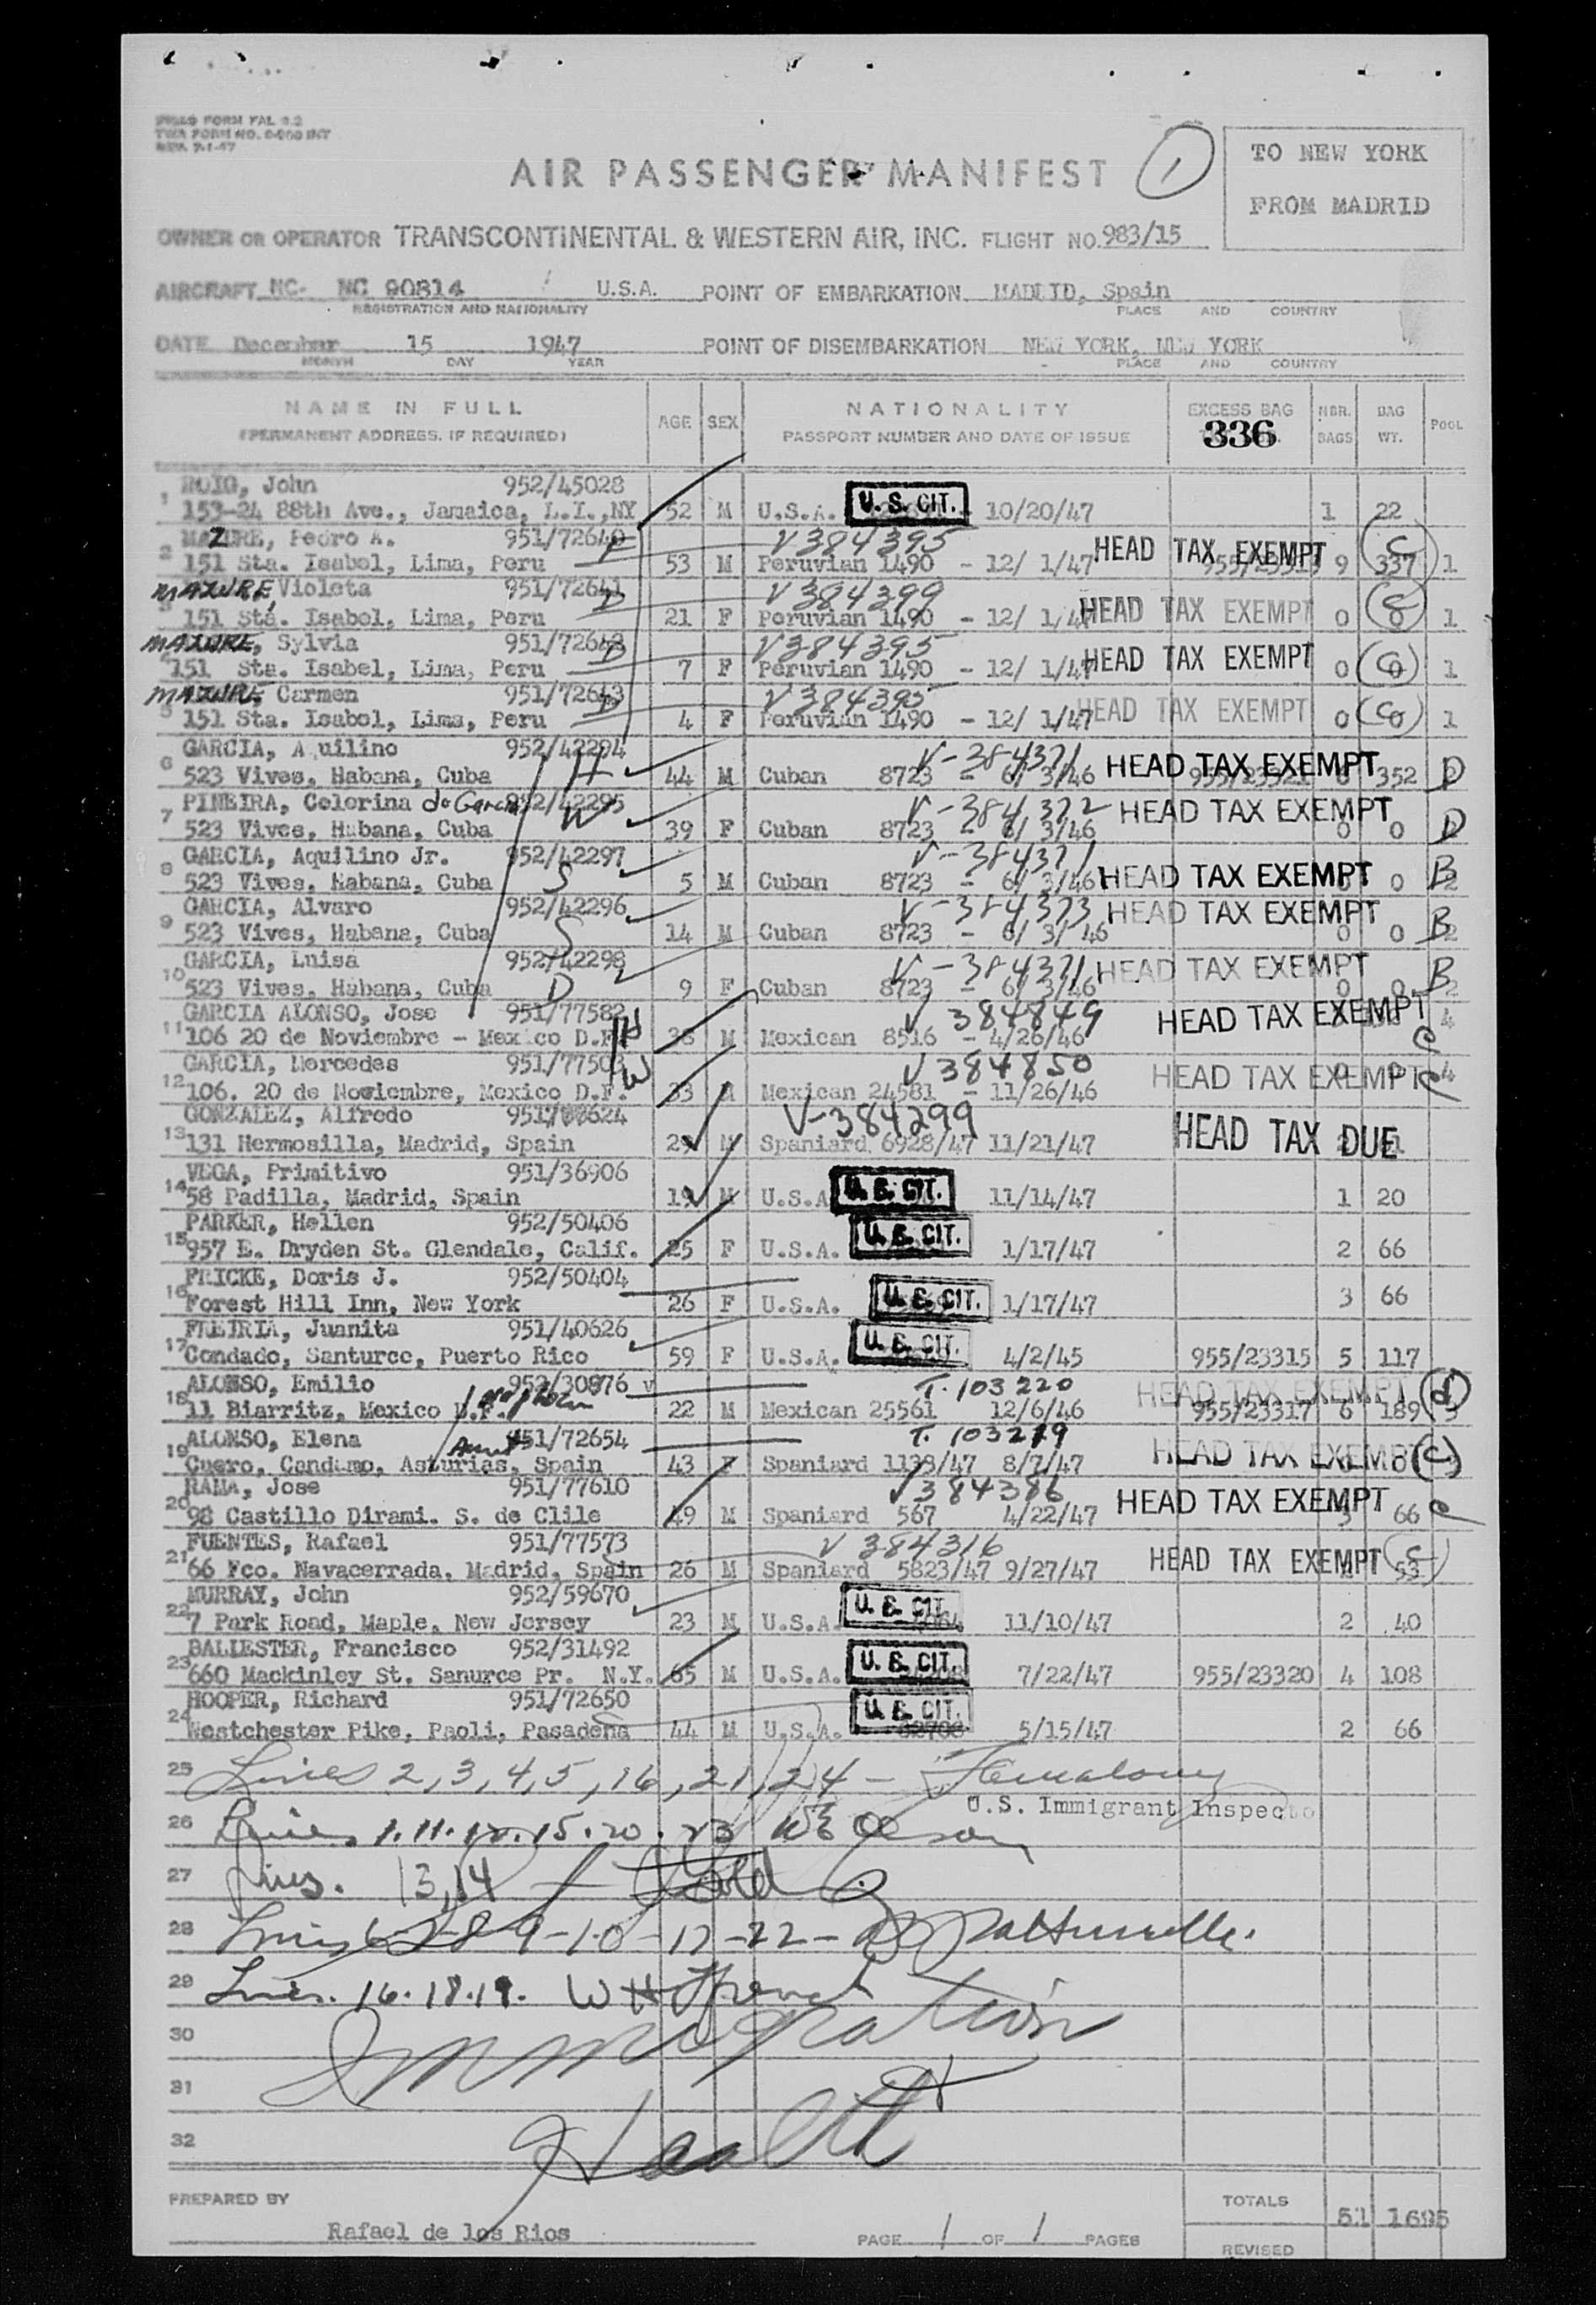 TWA FORM NO. 0-900 INT
REV. 7-1-47
AIR PASSENGER MANIFEST
1
TO NEW YORK
FROM MADRID
OWNER OR OPERATOR TRANSCONTINENTAL & WESTERN AIR, INC. FLIGHT NO. 983/15
AIRCRAFT NC- NC 90814 U.S.A. POINT OF EMBARKATION MADRID, Spain
REGISTRATION AND NATIONALITY PLACE AND COUNTRY
DATE December 15 1947 POINT OF DISEMBARKATION NEW YORK, NEW YORK
MONTH DAY YEAR PLACE AND COUNTRY
NAME IN FULL AGE SEX NATIONALITY EXCESS BAG NBR. BAG POOL
(PERMANENT ADDRESS, IF REQUIRED) PASSPORT NUMBER AND DATE OF ISSUE 336 BAGS WT.
ROIG, John 952/45028
1 153-24 88th Ave., Jamaica, L.I.,NY 52 M U.S.A. U.S. CIT. 10/20/47 1 22
MAZURE, Pedro A. 951/72640 V384395
2 151 Sta. Isabel, Lima, Peru F 53 M Peruvian 1490 - 12/ 1/47 HEAD TAX EXEMPT 9 337 C 1
MAZURE, Violeta 951/72641 V384399
3 151 Sta. Isabel, Lima, Peru D 21 F Peruvian 1490 - 12/ 1/47 HEAD TAX EXEMPT 0 0 C 1
MAZURE, Sylvia 951/72642 D V384395
4 151 Sta. Isabel, Lima, Peru 7 F Peruvian 1490 - 12/ 1/47 HEAD TAX EXEMPT 0 0 C 1
MAZURE, Carmen 951/72643 V384395
5 151 Sta. Isabel, Lima, Peru D 4 F Peruvian 1490 - 12/ 1/47 HEAD TAX EXEMPT 0 0 C 1
GARCIA, Aquilino 952/42294 V-384371
6 523 Vives, Habana, Cuba H 44 M Cuban 8723 - 6/ 3/46 HEAD TAX EXEMPT 955/23321 352 D
PINEIRA, Celerina de Garcia 952/42295 V-384372
7 523 Vives, Habana, Cuba W 39 F Cuban 8723 - 6/ 3/46 HEAD TAX EXEMPT 0 0 D
GARCIA, Aquilino Jr. 952/42297 V-384371
8 523 Vives, Habana, Cuba S 5 M Cuban 8723 - 6/ 3/46 HEAD TAX EXEMPT 0 B 2
GARCIA, Alvaro 952/42296 V-384373
9 523 Vives, Habana, Cuba S 14 M Cuban 8723 - 6/ 3/ 46 HEAD TAX EXEMPT 0 0 B 2
GARCIA, Luisa 952/42298 V-384371
10 523 Vives, Habana, Cuba D 9 F Cuban 8723 - 6/ 3/46 HEAD TAX EXEMPT 0 0 B 2
GARCIA ALONSO, Jose 951/77582 H V 384849
11 106 20 de Noviembre - Mexico D.F. 38 M Mexican 8516 - 4/26/46 HEAD TAX EXEMPT 4 C
GARCIA, Mercedes 951/77503 W V384850
12 106. 20 de Noviembre, Mexico D.F. 33 Mexican 24581 - 11/26/46 HEAD TAX EXEMPT 4 C
GONZALEZ, Alfredo V-384299
13 131 Hermosilla, Madrid, Spain 29 M Spaniard 6928/47 11/21/47 HEAD TAX DUE
VEGA, Primitivo 951/36906
14 58 Padilla, Madrid, Spain 19 M U.S.A U.S. CIT. 11/14/47 1 20
PARKER, Hellen 952/50406
15 957 E. Dryden St. Glendale, Calif. 25 F U.S.A. U.S. CIT. 1/17/47 2 66
FRICKE, Doris J. 952/50404
16 Forest Hill Inn, New York 26 F U.S.A. U.S. CIT. 1/17/47 3 66
FREIRIA, Juanita 951/40626
17 Condado, Santurce, Puerto Rico 59 F U.S.A. U.S. CIT. 4/2/45 955/23315 5 117
ALONSO, Emilio 952/30876 nephew T.103220
18 11 Biarritz, Mexico D.F. 22 M Mexican 25561 12/6/46 HEAD TAX EXEMPT 955/23317 6 189 d 3
ALONSO, Elena Aunt 951/72654 T. 103219
19 Cuero, Candamo, Asturias, Spain 43 F Spaniard 1138/47 8/7/47 HEAD TAX EXEMPT 0 C
RAMA, Jose 951/77610 V384386
20 98 Castillo Dirami. S. de Clile 49 M Spaniard 567 4/22/47 HEAD TAX EXEMPT 3 66 C
FUENTES, Rafael 951/77573 V 384316
21 66 Fco. Navacerrada, Madrid, Spain 26 M Spaniard 5823/47 9/27/47 HEAD TAX EXEMPT 53 C
MURRAY, John 952/59670
22 7 Park Road, Maple, New Jersey 23 M U.S.A. U.S. CIT. 11/10/47 2 40
BALLESTER, Francisco 952/31492
23 660 Mackinley St. Sanurce Pr. N.Y. 65 M U.S.A. U.S. CIT. 7/22/47 955/23320 4 108
HOOPER, Richard 951/72650
24 Westchester Pike, Paoli, Pasadena 44 M U.S.A. U.S. CIT. 5/15/47 2 66
25 Lines 2,3,4,5,16,21,24 -
U.S. Immigrant Inspecto
26 Lines 1.11.12.15.20.23
27 Lines. 13,14 -
28 Lines 6-7-8-9-10-17-22-
29 Lines. 16.18.19. W H French
30 Immigration
31
32 Health
PREPARED BY TOTALS 51 1695
Rafael de los Rios PAGE 1 OF 1 PAGES
REVISED